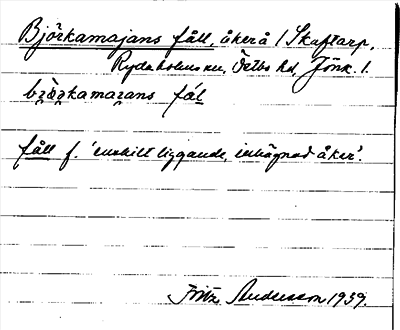 Björkamajans fåll, åker å 1 Skaftarp,
Rydaholms sn, Östbo hd, Jönk. l.
bʒörkamaɪans fål
fåll f. 'enskilt liggande, inhägnad åker'.
Fritz Andersson 1939.